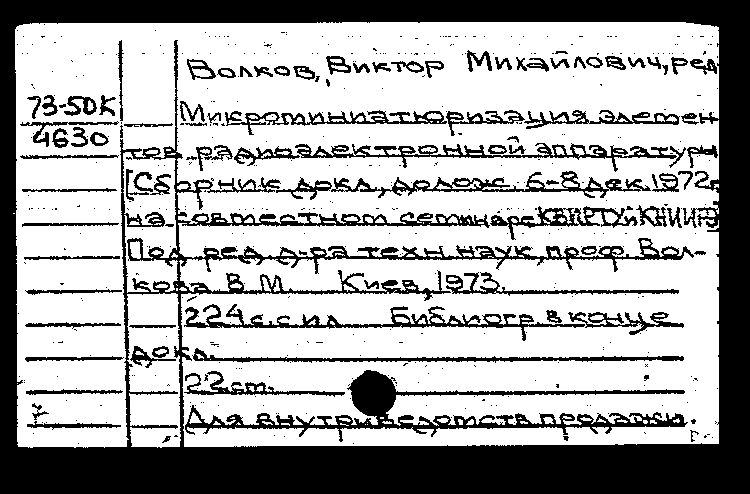 Волков, Виктор Михайлович, ред.
73-50К
4630
Микроминиатюризация элемен-
тов радиоэлектронной аппаратуры
[Сборник докл., долож. 6-8 дек. 1972г.
на совместном семинаре КВИРТУ и КНИИРЭ
Под ред. д-ра техн. наук, проф. Вол-
кова В.М. Киев, 1973.
224 с. с ил Библиогр. в конце
докл.
22 cm.
Для внутриведомств продажи.